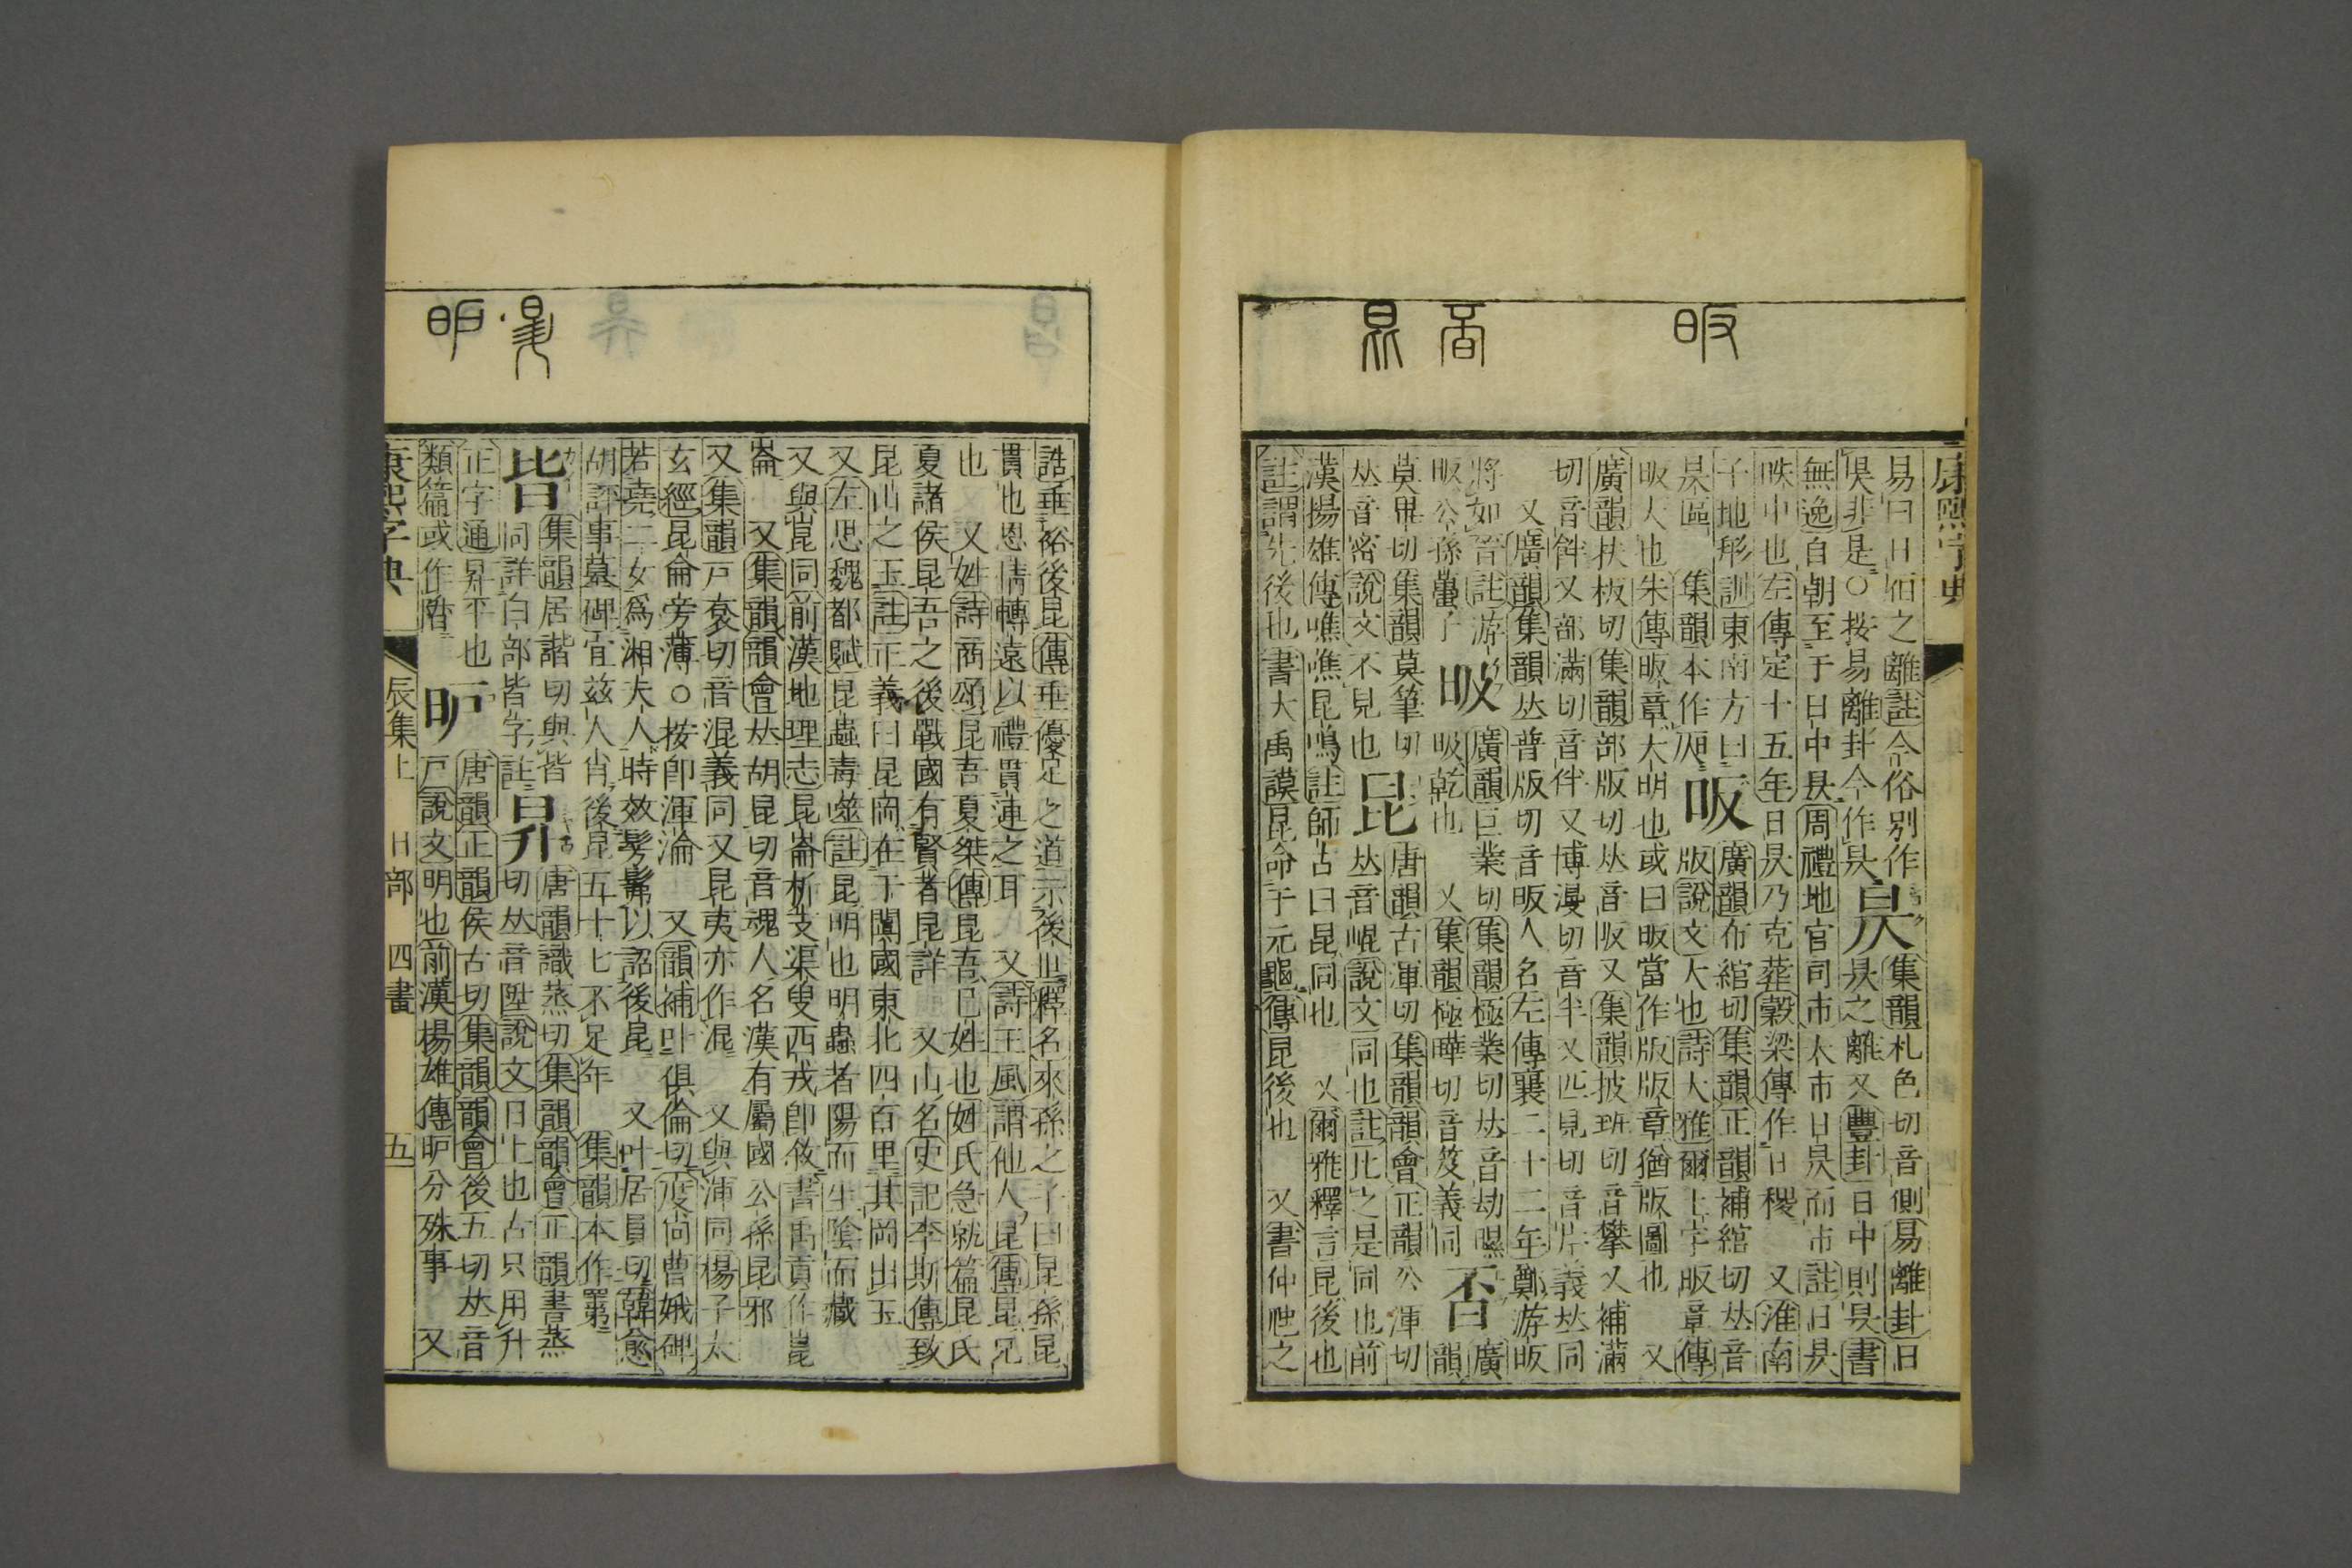 康熙字典
易曰日𣅔之離註今俗別作
昗非是○按易離卦今作昃
昃
集韻札色切音側易離卦日
昃之離又豐卦日中則昃書
無逸自朝至于日中昃周禮地官司市大市日昃而市註日昃
昳中也左傳定十五年日昃乃克葬穀梁傳作日稷　又淮南
子地形訓東南方曰
昃區　集韻本作𣅔
昄
廣韻布綰切集韻正韻補綰切𠀤音
版說文大也詩大雅爾土宇昄章傳
昄大也朱傳昄章大明也或曰昄當作版版章猶版圖也　又
廣韻扶板切集韻部版切𠀤音阪又集韻披班切音攀又補滿
切音䉽又部滿切音伴又博漫切音半又匹見切音片義𠀤同
又廣韻集韻𠀤普版切音眅人名左傳襄二十二年鄭游昄
將如晉註游昄
昄公孫蠆子
昅
廣韻巨業切集韻極業切𠀤音劫曝
昅乾也　又集韻極曄切音笈義同
否
廣
韻
莫畢切集韻莫筆切
𠀤音密說文不見也
昆
唐韻古渾切集韻韻會正韻公渾切
𠀤音崐說文同也註比之是同也前
漢揚雄傳噍噍昆鳴註師古曰昆同也　又爾雅釋言昆後也
註謂先後也書大禹謨昆命于元龜傳昆後也　又書仲虺之
誥垂裕後昆傳垂優足之道示後世釋名來孫之子曰昆孫昆
貫也恩情轉遠以禮貫連之耳　又詩王風謂他人昆傳昆兄
也　又姓詩商頌昆吾夏桀傳昆吾己姓也姓氏急就篇昆氏
夏諸侯昆吾之後戰國有賢者昆詳　又山名史記李斯傳致
昆山之玉註正義曰昆岡在于闐國東北四百里其岡出玉
又左思魏都賦昆蟲毒噬註昆明也明蟲者陽而生陰而藏
又與崑同前漢地理志昆崙析支渠叟西戎卽敘書禹貢作崑
崙　又集韻韻會𠀤胡昆切音魂人名漢有屬國公孫昆邪
又集韻戸袞切音混義同又昆夷亦作混　又與渾同楊子太
玄經昆侖旁薄○按卽渾淪　又韻補叶俱倫切度尚曹娥碑
若堯二女爲湘夫人時效髣髴以詔後昆　又叶居員切韓愈
胡評事墓碑宜兹人肖後昆五十七不足年　集韻本作𥊽
㫮
集韻居諧切與皆
同詳白部皆字註
昇
唐韻識蒸切集韻韻會正韻書蒸
切𠀤音陞說文日上也古只用升
正字通昇平也
昈
唐韻正韻侯古切集韻韻會後五切𠀤音
戸說文明也前漢楊雄傳昈分殊事　又
類篇或作䁈
康熙字典　辰集上　日部　四畫　五